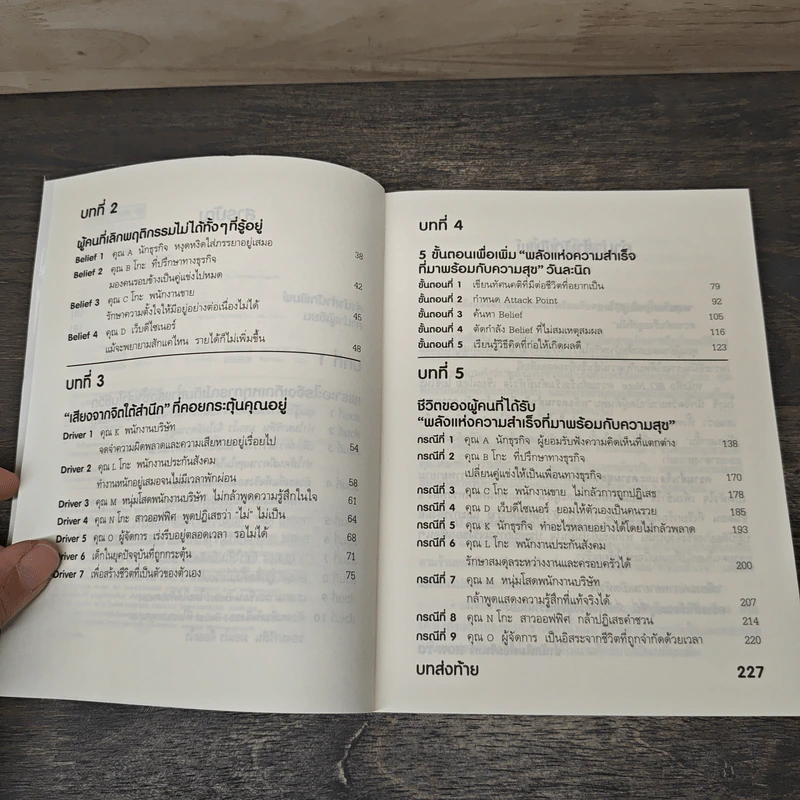 บทที่ 2
ผู้คนที่เลิกพฤติกรรมไม่ได้ทั้งๆ ที่รู้อยู่
Belief 1 คุณ A นักธุรกิจ หงุดหงิดใส่ภรรยาอยู่เสมอ 38
Belief 2 คุณ B โกะ ที่ปรึกษาทางธุรกิจ
มองคนรอบข้างเป็นคู่แข่งไปหมด 42
Belief 3 คุณ C โกะ พนักงานขาย
รักษาความตั้งใจให้มีอยู่อย่างต่อเนื่องไม่ได้ 45
Belief 4 คุณ D เว็บดีไซเนอร์
แม้จะพยายามสักแค่ไหน รายได้ก็ไม่เพิ่มขึ้น 48
บทที่ 3
“เสียงจากจิตใต้สำนึก” ที่คอยกระตุ้นคุณอยู่
Driver 1 คุณ K พนักงานบริษัท
จดจำความผิดพลาดและความเสียหายอยู่เรื่อยไป 54
Driver 2 คุณ L โกะ พนักงานประกันสังคม
ทำงานหนักอยู่เสมอจนไม่มีเวลาพักผ่อน 58
Driver 3 คุณ M หนุ่มโสดพนักงานบริษัท ไม่กล้าพูดความรู้สึกในใจ 61
Driver 4 คุณ N โกะ สาวออฟฟิศ พูดปฏิเสธว่า “ไม่” ไม่เป็น 64
Driver 5 คุณ O ผู้จัดการ เร่งรีบอยู่ตลอดเวลา รอไม่ได้ 68
Driver 6 เด็กในยุคปัจจุบันที่ถูกกระตุ้น 71
Driver 7 เพื่อสร้างชีวิตที่เป็นตัวของตัวเอง 75
บทที่ 4
5 ขั้นตอนเพื่อเพิ่ม “พลังแห่งความสำเร็จ
ที่มาพร้อมกับความสุข” วันละนิด
ขั้นตอนที่ 1 เขียนทัศนคติที่มีต่อชีวิตที่อยากเป็น 79
ขั้นตอนที่ 2 กำหนด Attack Point 92
ขั้นตอนที่ 3 ค้นหา Belief 105
ขั้นตอนที่ 4 ตัดกำลัง Belief ที่ไม่สมเหตุสมผล 116
ขั้นตอนที่ 5 เรียนรู้วิธีคิดที่ก่อให้เกิดผลดี 123
บทที่ 5
ชีวิตของผู้คนที่ได้รับ
“พลังแห่งความสำเร็จที่มาพร้อมกับความสุข”
กรณีที่ 1 คุณ A นักธุรกิจ ผู้ยอมรับฟังความคิดเห็นที่แตกต่าง 138
กรณีที่ 2 คุณ B โกะ ที่ปรึกษาทางธุรกิจ
เปลี่ยนคู่แข่งให้เป็นเพื่อนทางธุรกิจ 170
กรณีที่ 3 คุณ C โกะ พนักงานขาย ไม่กลัวการถูกปฏิเสธ 178
กรณีที่ 4 คุณ D เว็บดีไซเนอร์ ยอมให้ตัวเองเป็นคนรวย 185
กรณีที่ 5 คุณ K นักธุรกิจ ทำอะไรหลายอย่างได้โดยไม่กลัวพลาด 193
กรณีที่ 6 คุณ L โกะ พนักงานประกันสังคม
รักษาสมดุลระหว่างงานและครอบครัวได้ 200
กรณีที่ 7 คุณ M หนุ่มโสดพนักงานบริษัท
กล้าพูดแสดงความรู้สึกที่แท้จริงได้ 207
กรณีที่ 8 คุณ N โกะ สาวออฟฟิศ กล้าปฏิเสธคำชวน 214
กรณีที่ 9 คุณ O ผู้จัดการ เป็นอิสระจากชีวิตที่ถูกจำกัดด้วยเวลา 220
บทส่งท้าย 227